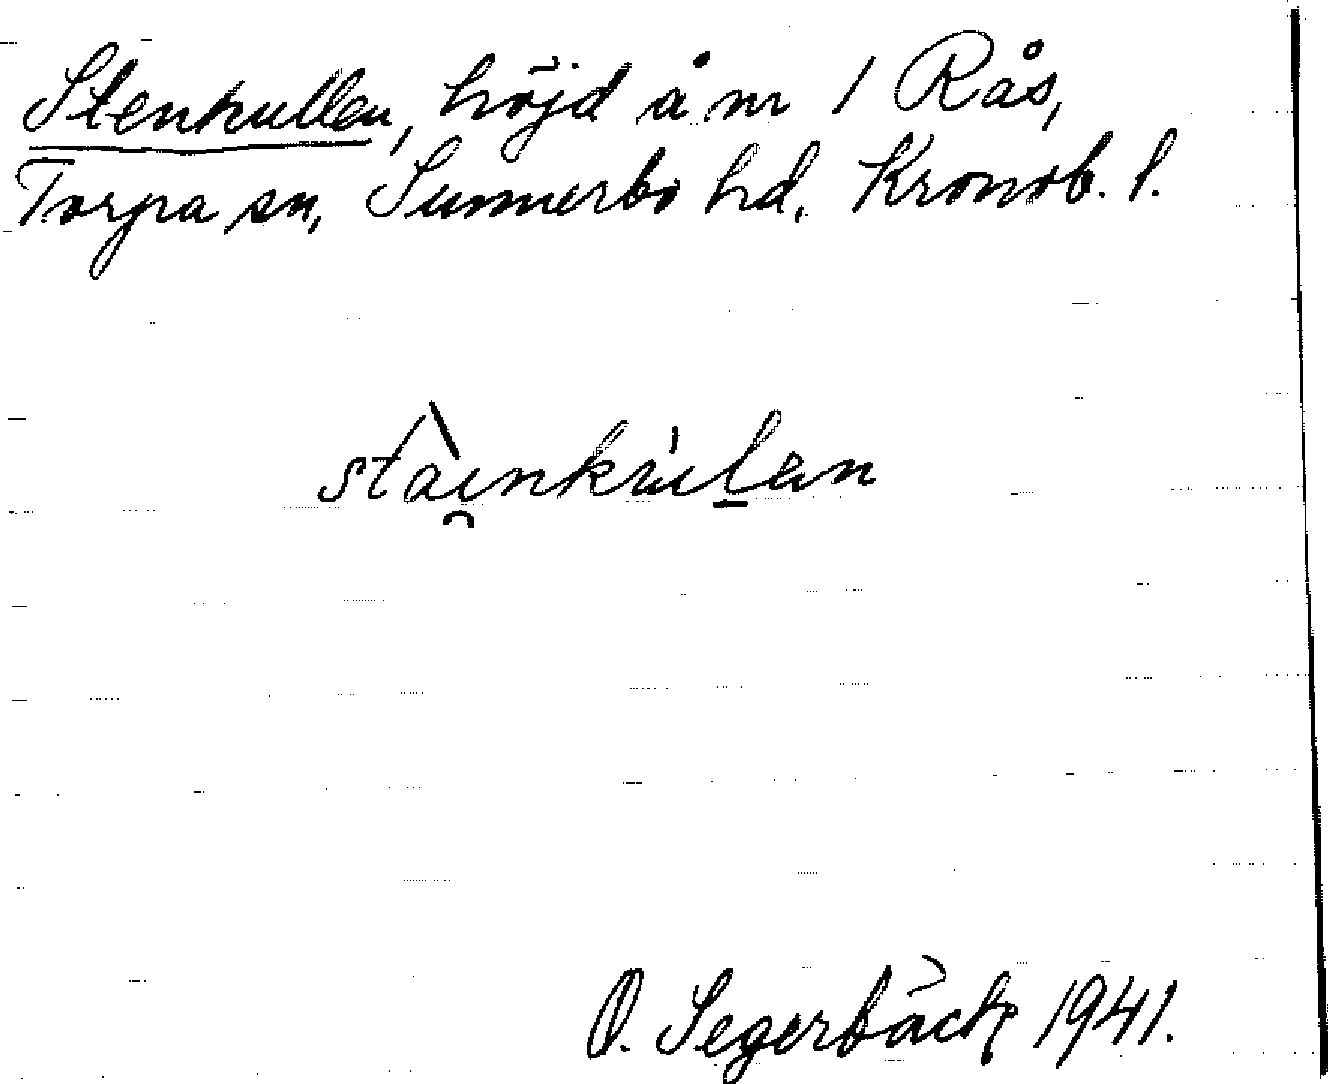 Stenkullen, höjd å nr 1 Rås,
Torpa sn, Sunnerbo hd, Kronob. l.
stàɪ̯nkúl̠an
O. Segerbäck 1941.